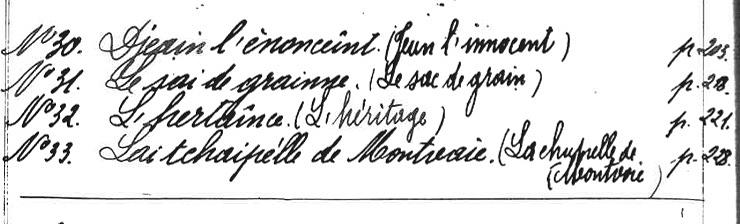 N° 30. Djeain l'ênonceint. (Jean l'innocent) p. 203.
N° 31. Le sai de grainne. (Le sac de grain) p. 218.
N° 32. L'hertaince. (L'héritage) p. 221.
N° 33. Lai tchaipelle de Montvoie. (La chapelle de p. 228.
Montvoie)